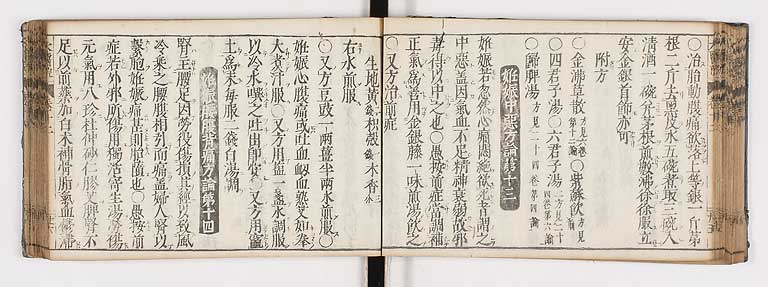 ○治胎動腹痛欲落上等銀一斤茅
根二斤去黒皮水五碗煮取三碗入
清酒一碗分茅根煎數沸徐徐服立
安金銀首飾亦可
附方
○金沸草散方見二卷第十三論○紫蘇飲方見
○四君子湯○六君子湯二方見二十四卷第六論
○歸脾湯方見二十四卷第四論
妊娠中惡方論第十三
妊娠若忽然心痛悶絕欲死者謂之
中惡蓋因氣血不足精神衰弱故邪
毒得以中之也○愚按前症當調補
正氣爲善用金銀藤一味煎湯飲之
○又方治前症
生地黄枳殼木香
右水煎服
○又方豆豉一兩薑半兩水煎服○
妊娠心腹痛或吐血衂血或如拳
大煮汁服○又方用鹽一盞水調服
以冷水噀之吐出即安○又方用竈
土爲末每服一錢白湯調
妊娠腰背痛方論第十四
腎主腰足因勞役傷損其經以致風
冷乘之腰腹相引而痛蓋婦人腎以
繫胞妊娠痛甚則胎墮也○愚按前
症若外邪所傷用獨活寄生湯勞傷
元氣用八珍杜仲砂仁膠艾脾腎不
足以前藥加白朮補骨脂氣血鬱滯